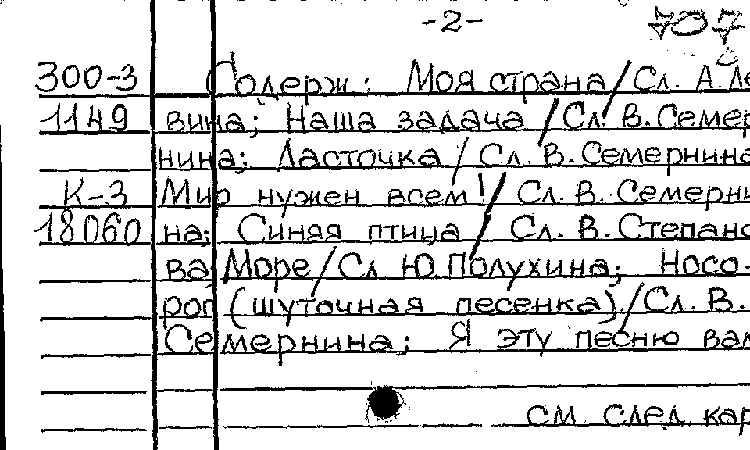 -2- 707
300-3 Содерж: Моя страна/Сл. А Ле
1149 вина; Наша задача /Сл. В. Семер
нина; Ласточка / Сл. В. Семернина
К-3 Мир нужен всем!/ Сл. В. Семерни
18060 на; Синяя птица / Сл. В. Степано
ва, Море/Сл Ю Полухина; Носо-
рог (шуточная песенка)/Сл. В.
Семернина; Я эту песню вам
см. след. кар